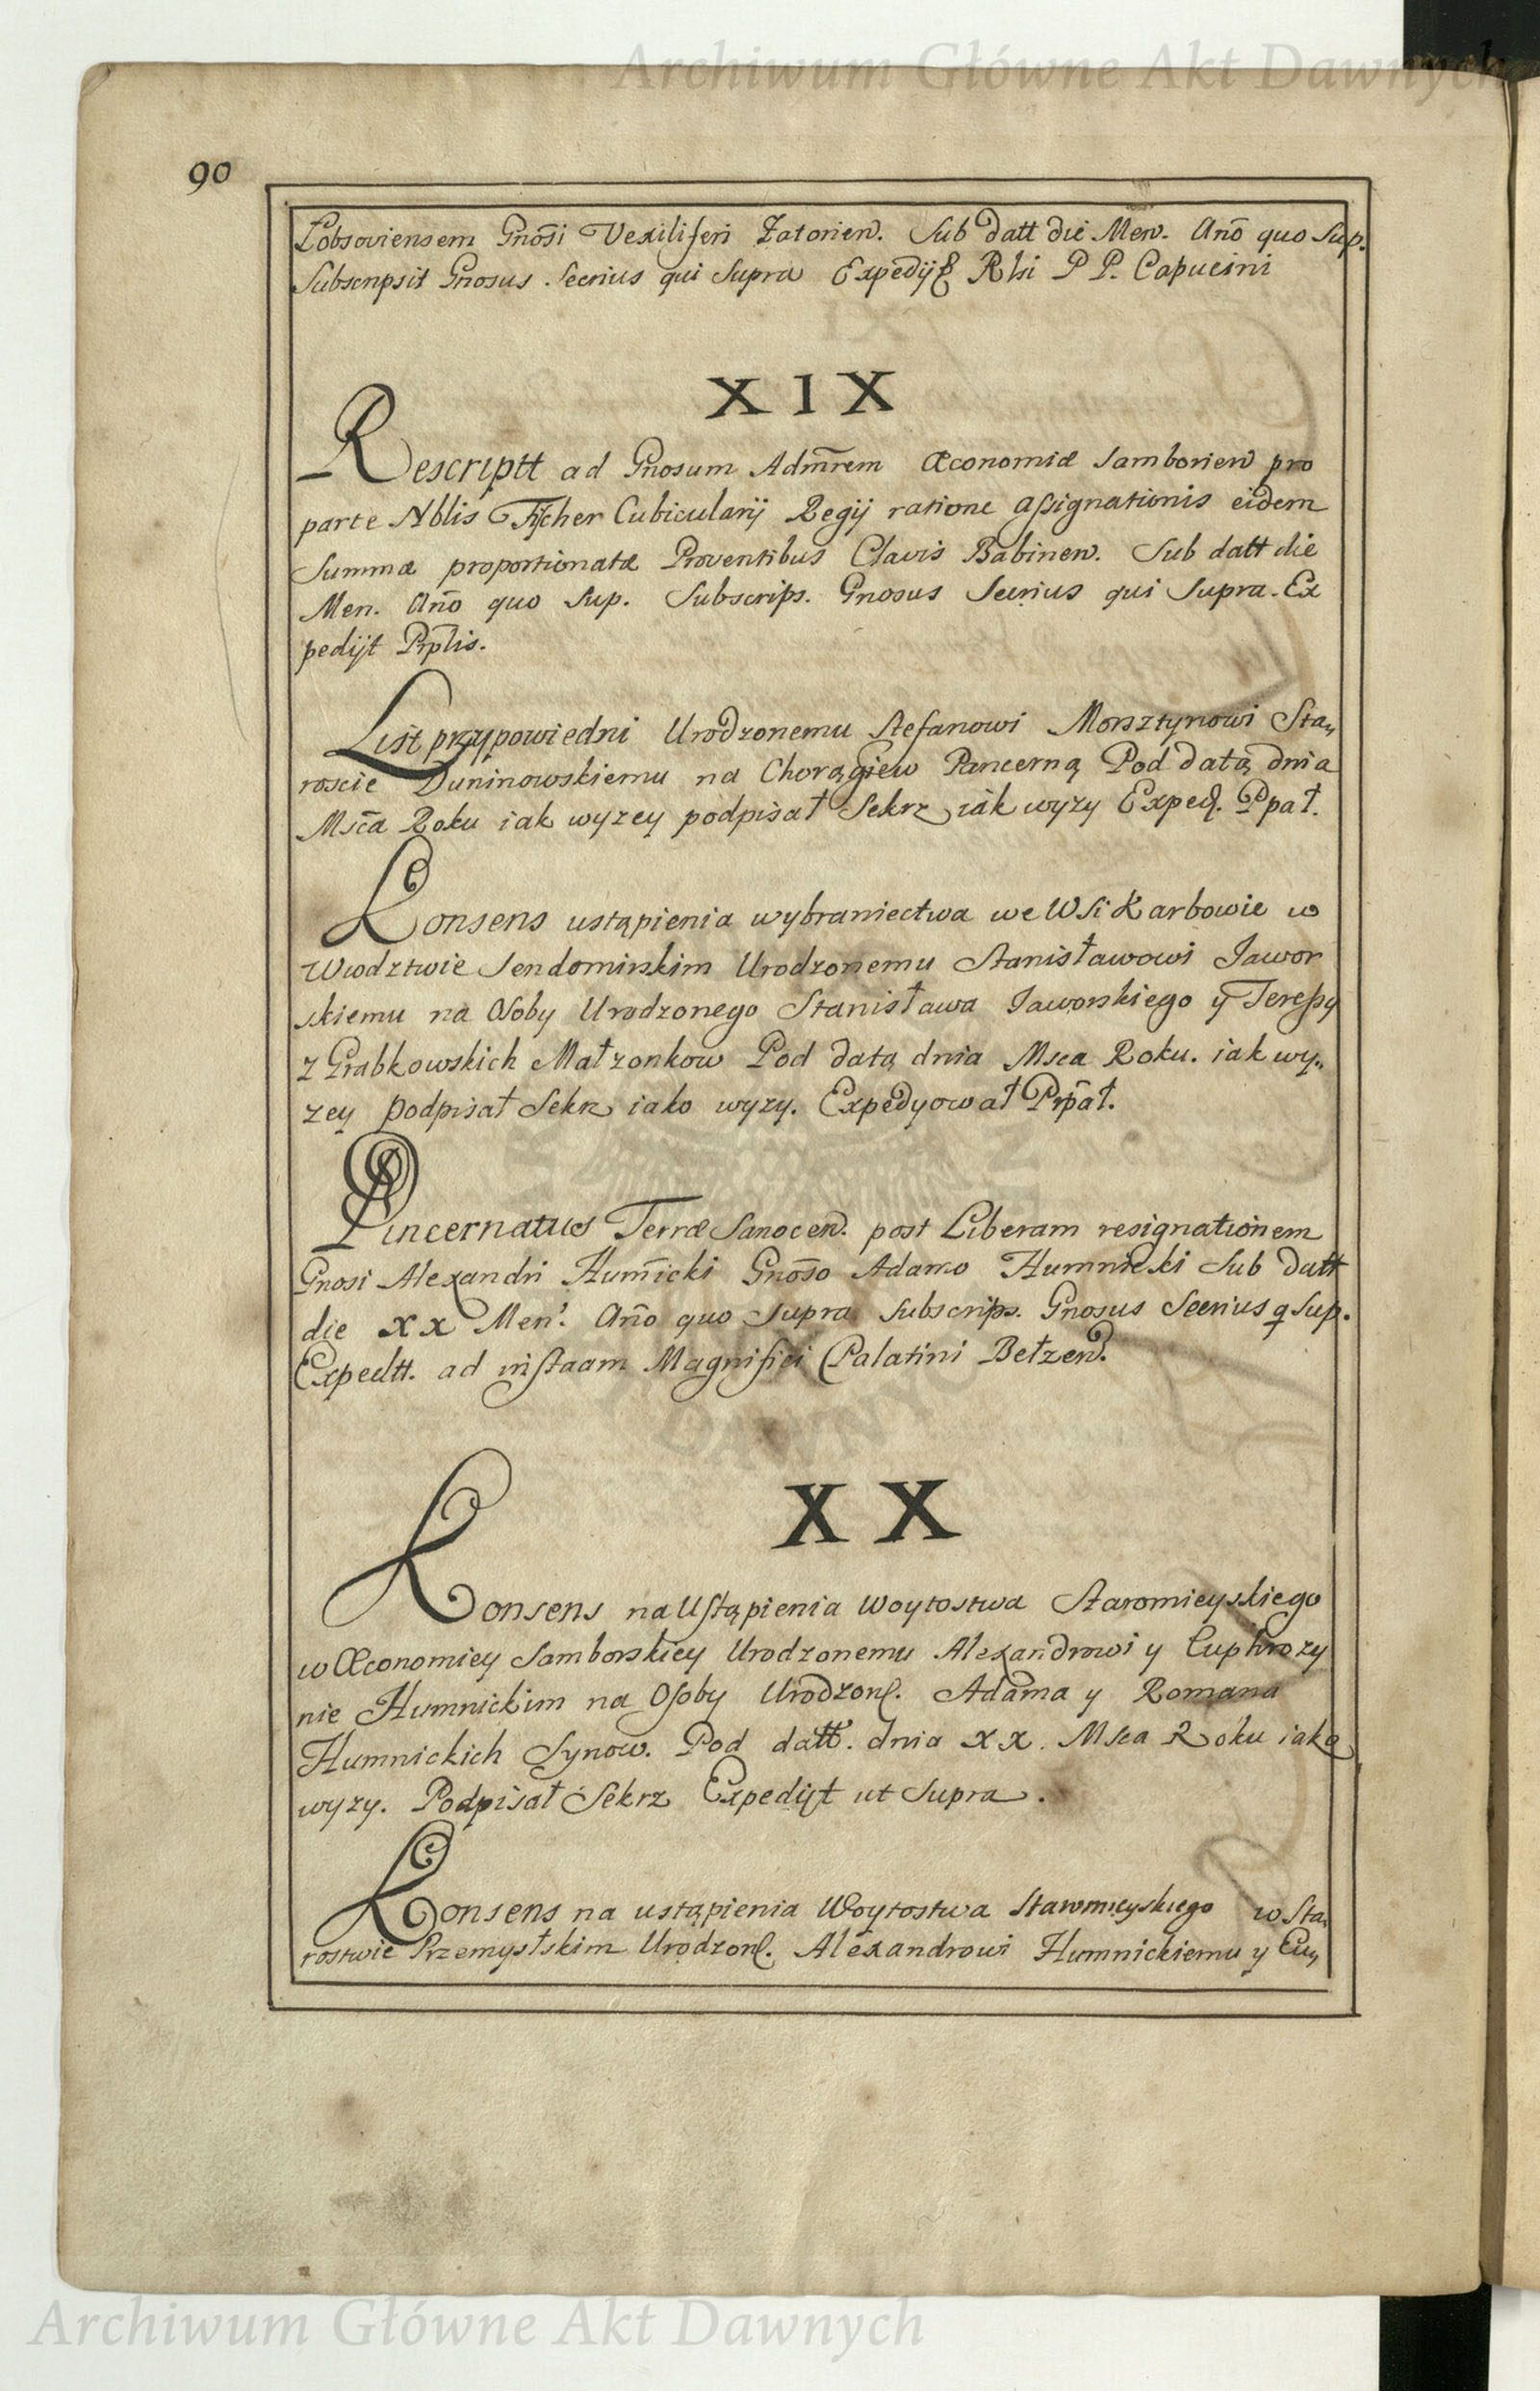 Archiwum Główne Akt Dawnych
90
Łobsoviensem Gnosi Vexiliferi Zatorien. Sub datt die Men. Ano quo Sup.
Subscripsit Gnosus Secrius qui Supra Expedijt Rlsi P P. Capucini
XIX
Rescriptt ad Gnosum Admrem Œconomiæ Samborien pro
parte Nblis Fischer Cubicularij Regij ratione assignationis eidem
Summæ proportionatæ Proventibus Clavis Babinen. Sub datt die
Men. Ano quo Sup. Subscrips. Gnosus Secrius qui Supra. Ex
pedijt Prplis.
List przypowiedni Urodzonemu Stefanowi Morsztynowi Sta„
roscie Duninowskiemu na Chorągiew Pancerną Pod datą dnia
Msca Roku iak wyzey podpisał Sekrz iak wyzy Exped. Ppał.
Konsens ustąpienia wybraniectwa we WSi Karbowie w
Wwodztwie Sendomirskim Urodzonemu Stanisławowi Jawor
skiemu na Osoby Urodzonego Stanisława Jaworskiego y Teressy
z Grabkowskich Małzonkow Pod datą dnia Msca Roku. iak wy„
zey podpisał Sekrz iako wyzy. Expedyował Prpał.
Pincernatus Terræ Sanocen. post Liberam resignationem
Gnosi Alexandri Humicki Gnoso Adamo Humnicki Sub datt
die XX Men. Ano quo Supra Subscrips. Gnosus Secrius q Sup.
Expedtt. ad instaam Magnifici Palatini Bełzen.
XX
Konsens na Ustąpienia Woytostwa Staromieyskiego
w Œconomiey Samborskiey Urodzonemu Alexandrowi y Euphrozy
nie Humnickim na Osoby Urodzon. Adama y Romana
Humnickich Synow. Pod datt. dnia XX. Msca Roku iako
wyzy. Podpisał Sekrz Expedijt ut Supra.
Konsens na ustąpienia Woytostwa Staromieyskiego w Sta„
rostwie Przemysłskim Urodzon. Alexandrowi Humnickiemu y Eu„
Archiwum Główne Akt Dawnych